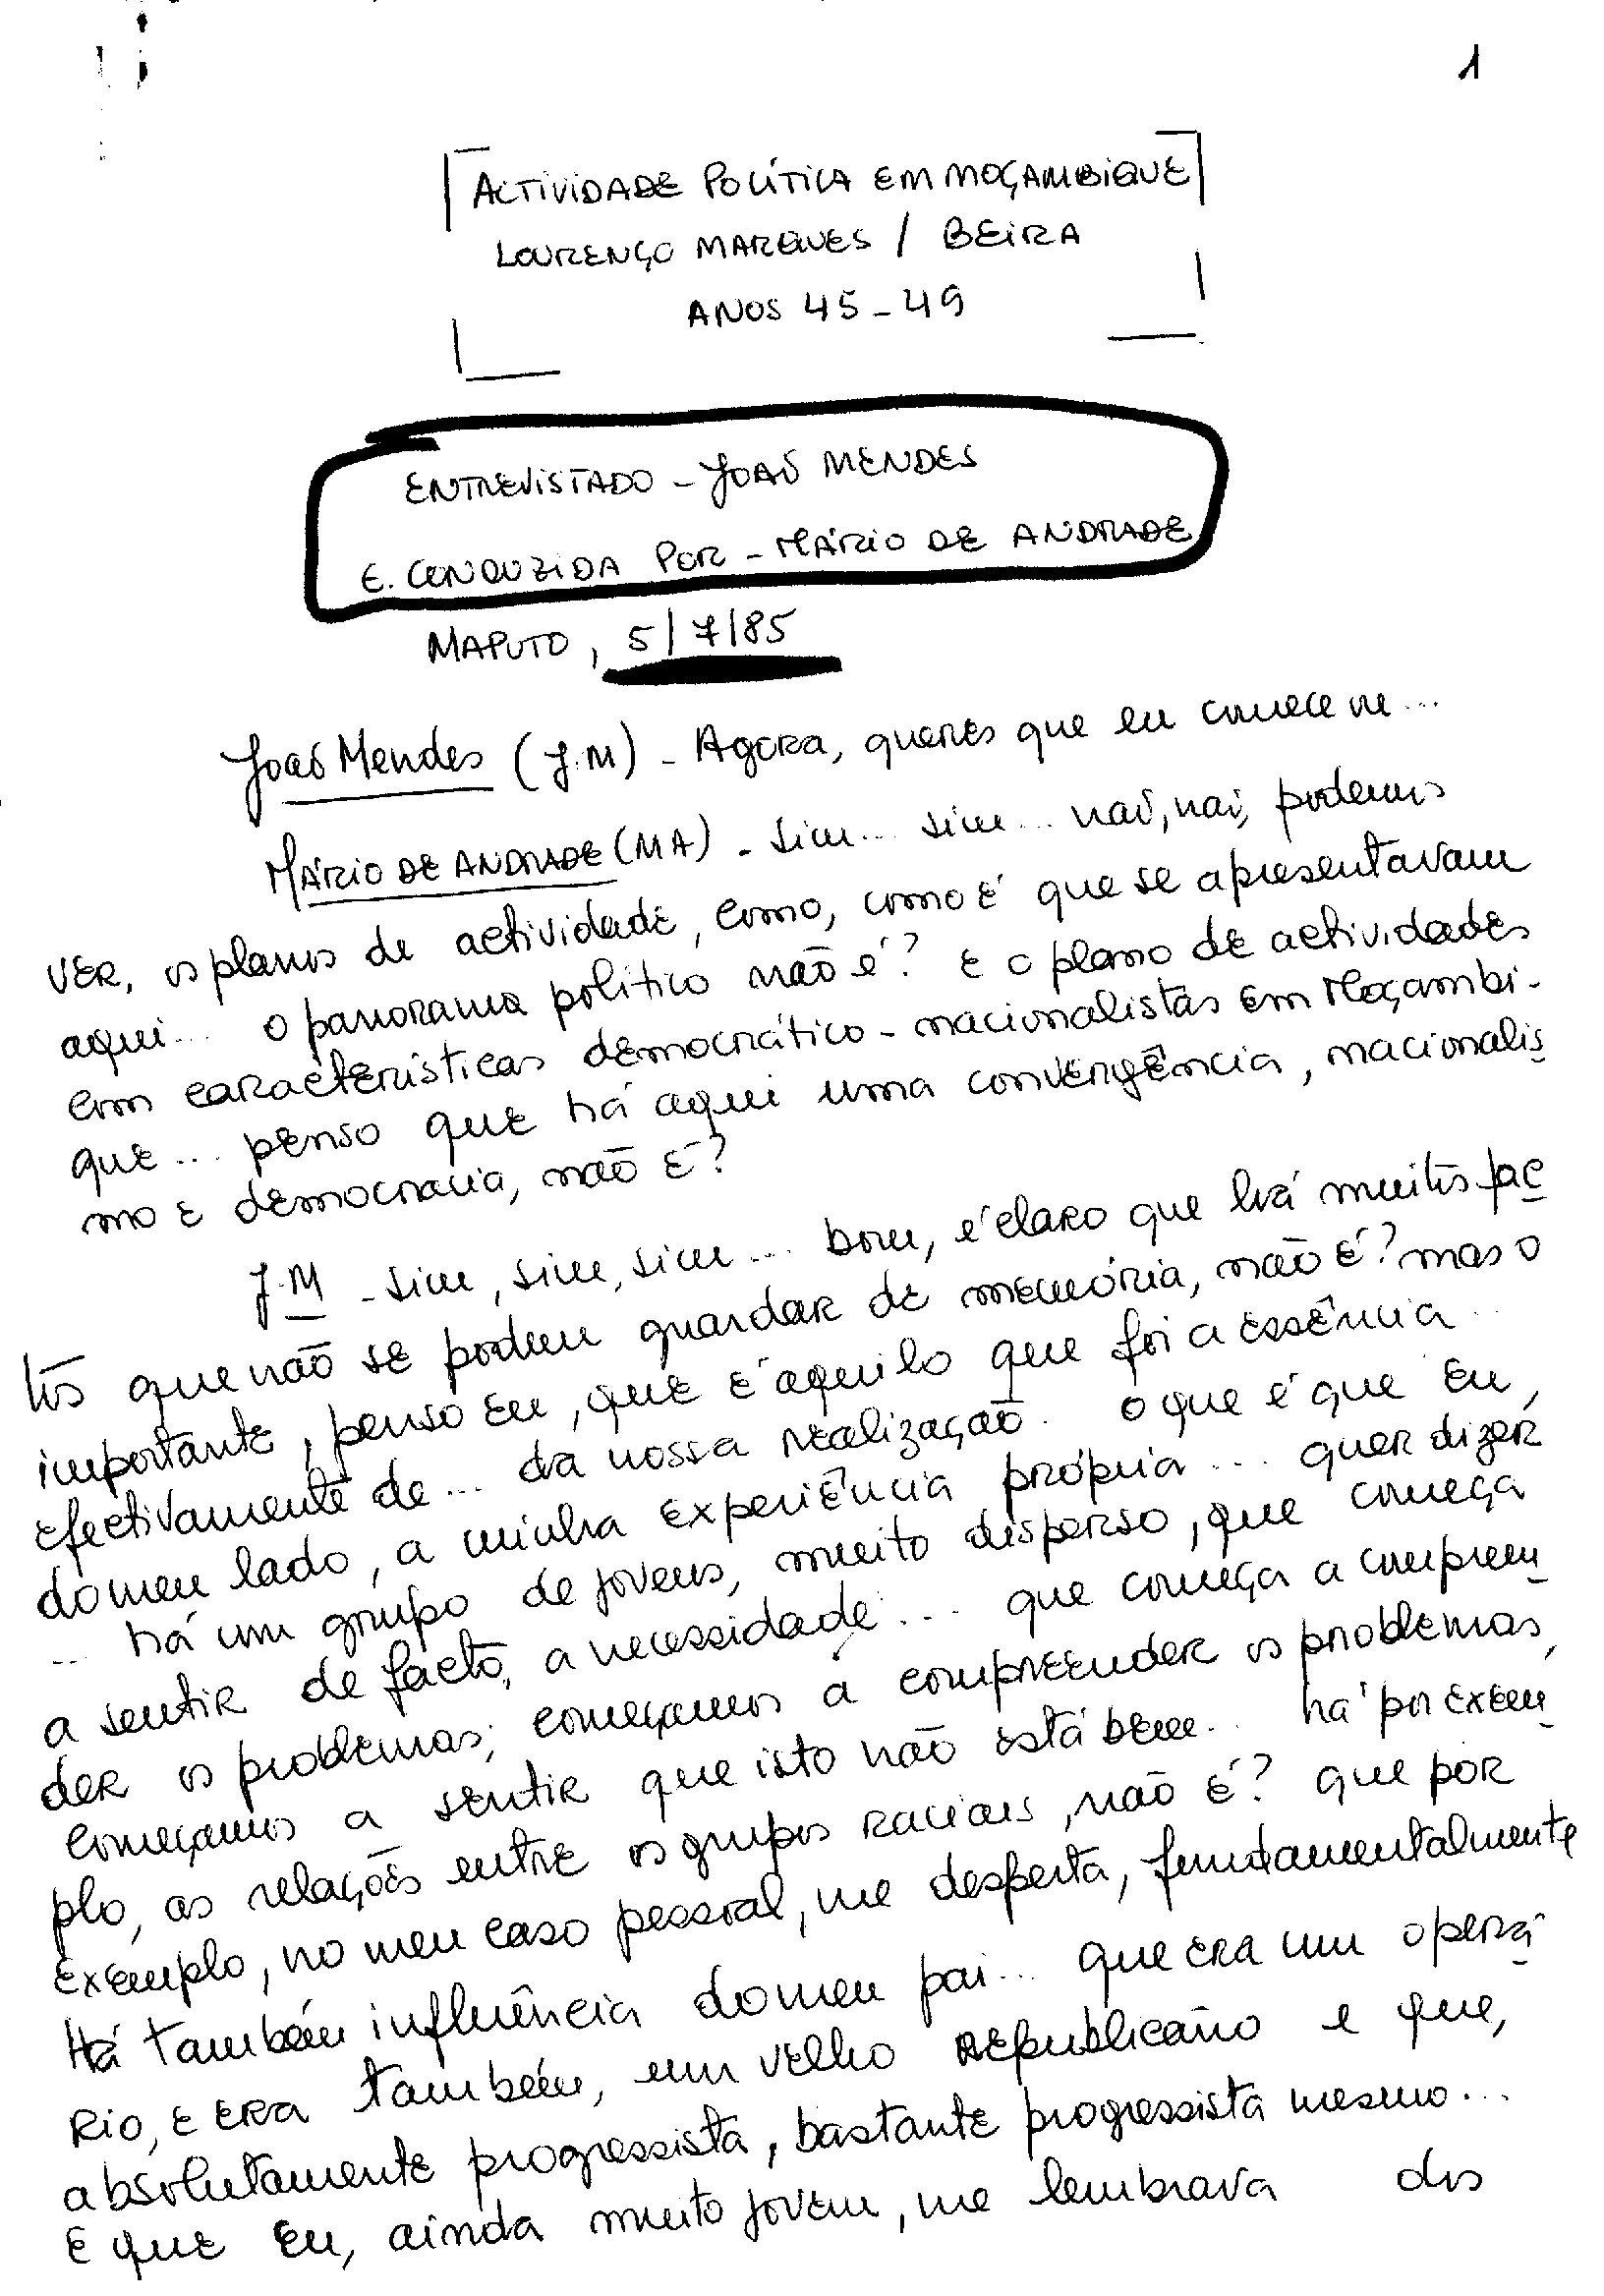 1
ACTIVIDADE POLÍTICA EM MOÇAMBIQUE
LOURENÇO MARQUES / BEIRA
ANOS 45-49
ENTREVISTADO - JOAÕ MENDES
E. CONDUZIDA POR - MÁRIO DE ANDRADE
MAPUTO, 5/7/85
Joaõ Mendes (J.M) - Agora, queres que eu comece
MÁRIO DE ANDRADE (MA) - Sim... sim... naõ, naõ, podemos
ver, os planos de actividade, como, como é que se apresentavam
aqui... o panorama político não é? E o plano de actividades
com características democrático-nacionalistas em Moçambi-
que... penso que há aqui uma convergência, nacionalis
mo e democracia, não é?
J.M - Sim, sim, sim... bom, é claro que há muitos fac
tos que não se podem guardar de memória, não é? mas o
importante, penso eu, que é aquilo que foi a essência..
efectivamente de... da nossa realização. O que é que eu,
do meu lado, a minha experiência própria... quer dizer
... há um grupo de jovens, muito disperso, que começa
a sentir de facto, a necessidade... que começa a compreen
der os problemas; começamos a compreender os problemas,
começamos a sentir que isto não está bem... há por exem
plo, as relações entre os grupos raciais, não é? que por
exemplo, no meu caso pessoal, me desperta, fundamentalmente
Há também influência do meu pai... que era um operá
rio, e era também, um velho republicano e que,
absolutamente progressista, bastante progressista mesmo...
e que eu, ainda muito jovem, me lembrava dos